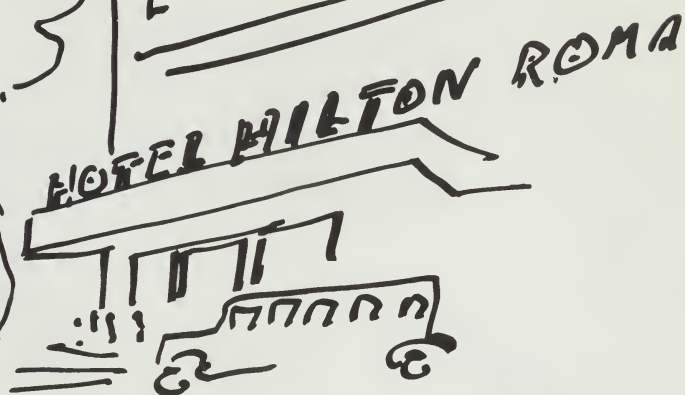 HOTEL HILTON ROMA